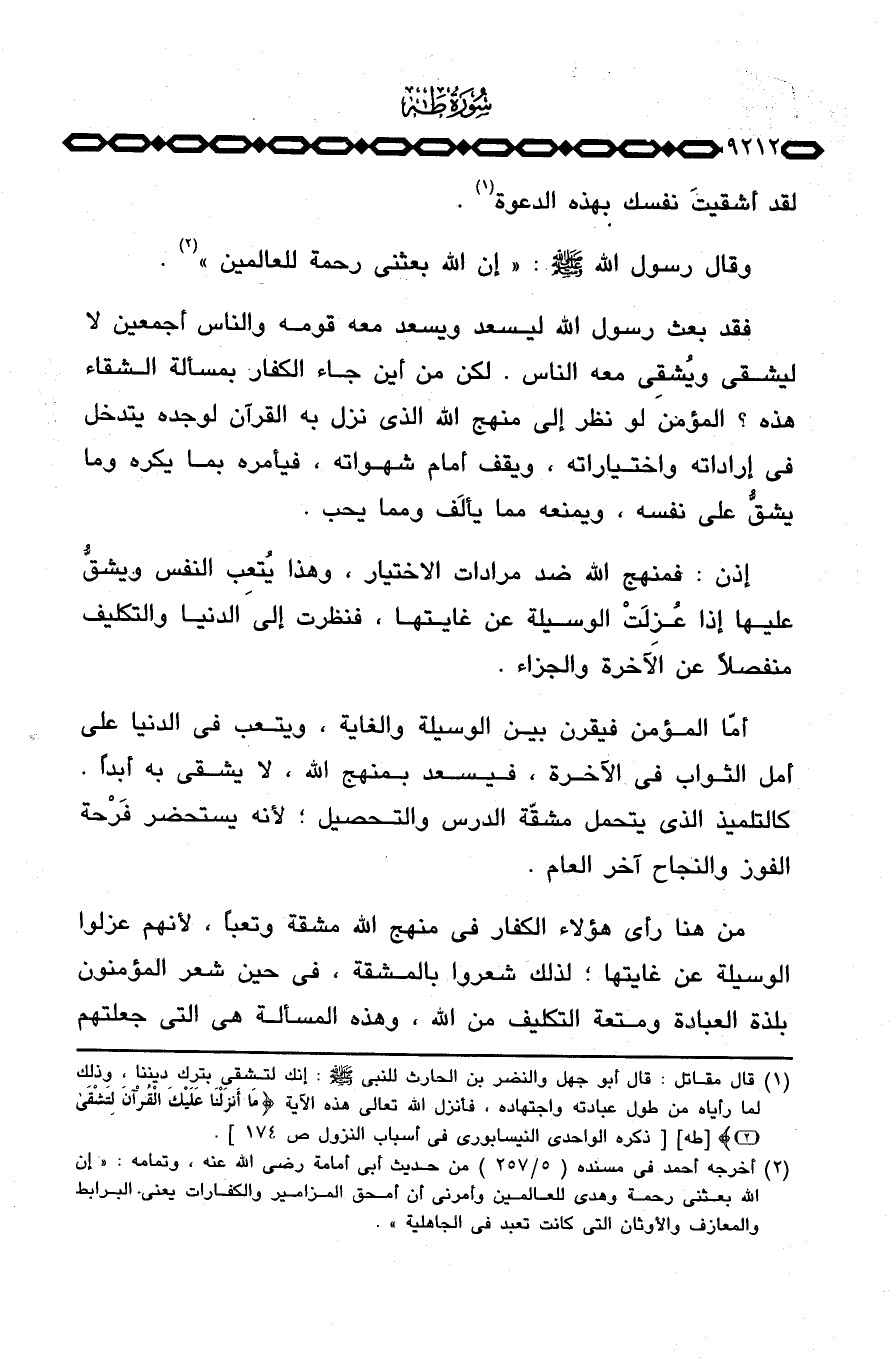 سُورَةُ طٰهٰ
٩٢١٢
لقد أشقيتَ نفسك بهذه الدعوة(١) .
وقال رسول الله ﷺ : « إن الله بعثنى رحمة للعالمين »(٢) .
فقد بعث رسول الله ليسعد ويسعد معه قومه والناس أجمعين لا
ليشقى ويُشقِى معه الناس . لكن من أين جاء الكفار بمسألة الشقاء
هذه ؟ المؤمن لو نظر إلى منهج الله الذى نزل به القرآن لوجده يتدخل
فى إراداته واختياراته ، ويقف أمام شهواته ، فيأمره بما يكره وما
يشقُّ على نفسه ، ويمنعه مما يألَف ومما يحب .
إذن : فمنهج الله ضد مرادات الاختيار ، وهذا يُتعِب النفس ويشقُّ
عليها إذا عُزِلَتْ الوسيلة عن غايتها ، فنظرت إلى الدنيا والتكليف
منفصلاً عن الآخرة والجزاء .
أمّا المؤمن فيقرن بين الوسيلة والغاية ، ويتعب فى الدنيا على
أمل الثواب فى الآخرة ، فيسعد بمنهج الله ، لا يشقى به أبداً .
كالتلميذ الذى يتحمل مشقّة الدرس والتحصيل ؛ لأنه يستحضر فَرْحة
الفوز والنجاح آخر العام .
من هنا رأى هؤلاء الكفار فى منهج الله مشقة وتعباً ، لأنهم عزلوا
الوسيلة عن غايتها ؛ لذلك شعروا بالمشقة ، فى حين شعر المؤمنون
بلذة العبادة ومتعة التكليف من الله ، وهذه المسألة هى التى جعلتهم
(١) قال مقاتل : قال أبو جهل والنضر بن الحارث للنبى ﷺ : إنك لتشقى بترك ديننا ، وذلك
لما رأياه من طول عبادته واجتهاده ، فأنزل الله تعالى هذه الآية ﴿ مَا أَنزَلْنَا عَلَيْكَ الْقُرْآنَ لِتَشْقَىٰ
(٢)﴾ [طه] [ ذكره الواحدى النيسابورى فى أسباب النزول ص ١٧٤ ] .
(٢) أخرجه أحمد فى مسنده ( ٢٥٧/٥ ) من حديث أبى أمامة رضى الله عنه ، وتمامه : « إن
الله بعثنى رحمة وهدى للعالمين وأمرنى أن أمحق المزامير والكفارات يعنى البرابط
والمعازف والأوثان التى كانت تعبد فى الجاهلية » .